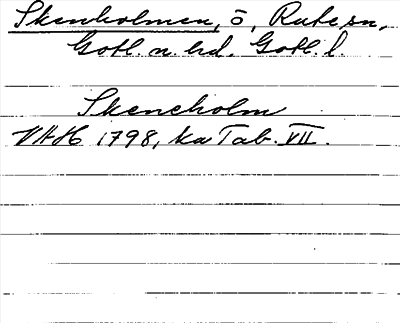 Skenholmen, ö, Rute sn,
Gotl. n. hd. Gotl. l.
Skeneholm
VAH 1798, ka Tab. VII.